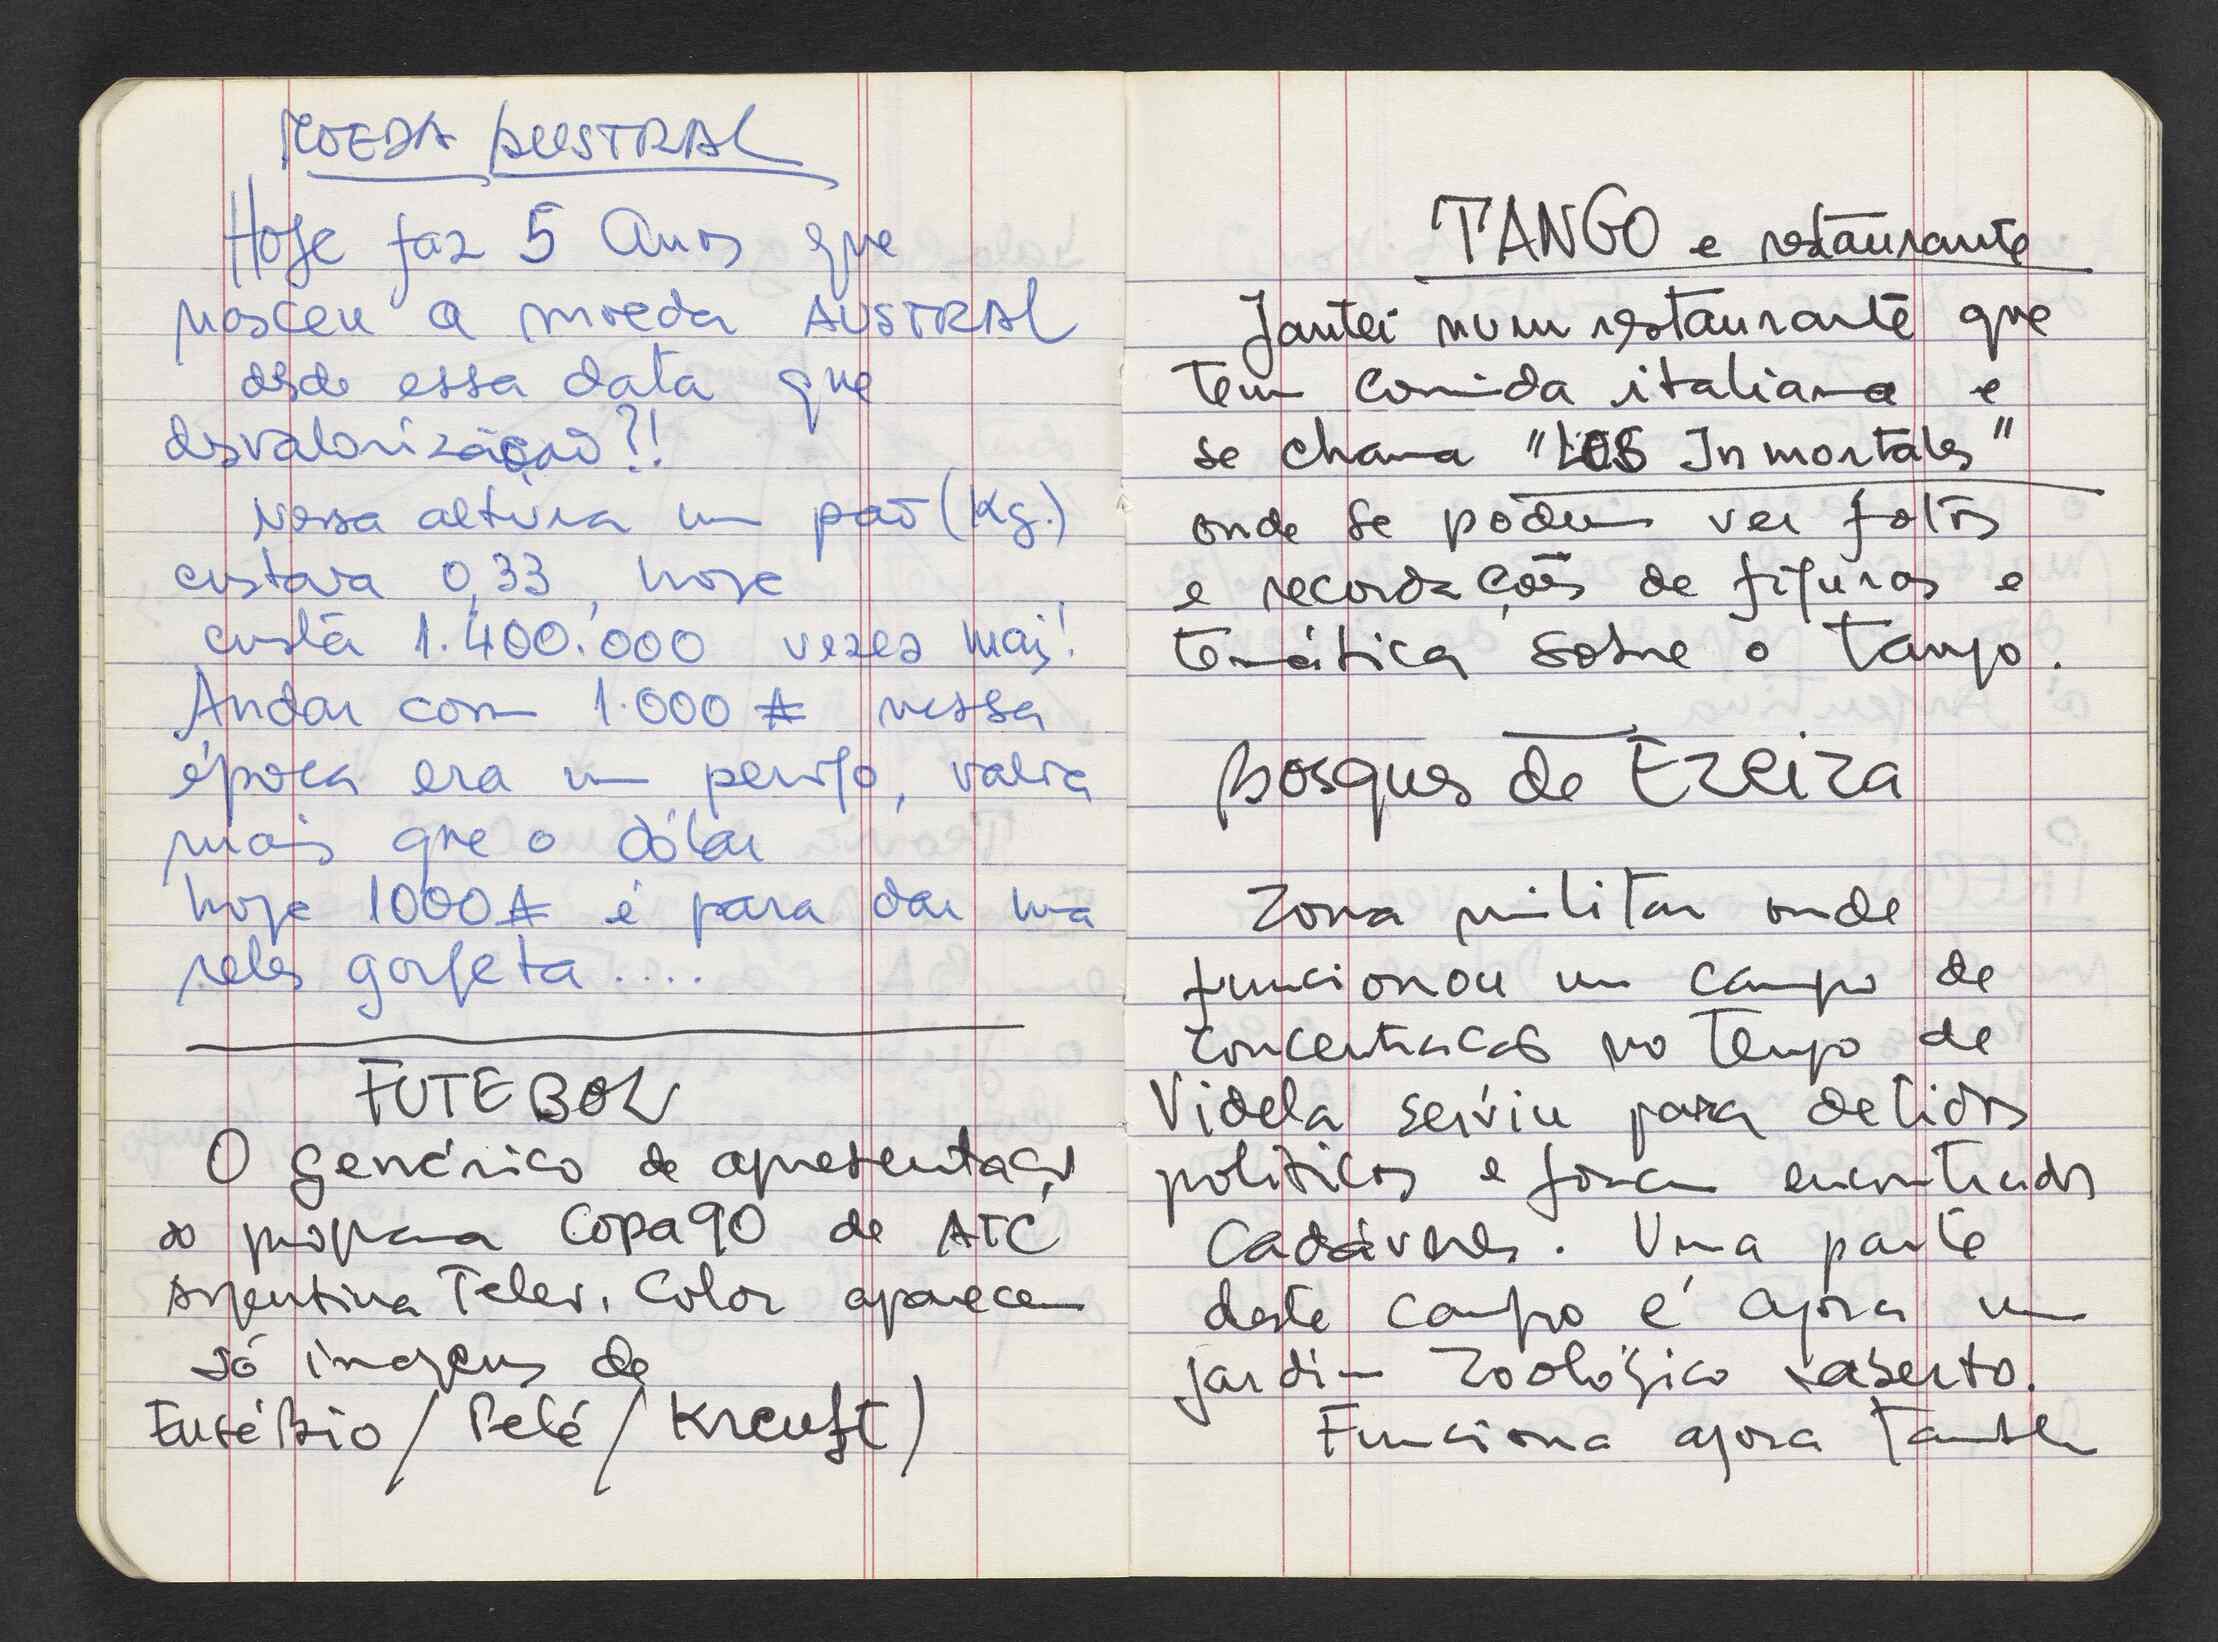 MOEDA AUSTRAL
Hoje faz 5 Anos que
nasceu a moeda AUSTRAL
desde essa data que
desvalorização?!
Nessa altura um pão (Kg.)
custava 0,33, hoje
custa 1.400.000 vezes mais!
Andar com 1.000 ₳ nessa
época era um perigo, valia
mais que o dólar
hoje 1000 ₳ é para dar uma
reles gorjeta....
FUTEBOL
O genérico de apresentação
do programa Copa 90 de ATC
Argentina Telev. Color aparecem
só imagens de
Eusébio / Pelé / Kreuft)
TANGO e restaurante
Jantei num restaurante que
tem comida italiana e
se chama "LOS Inmortales"
onde se podem ver fotos
e recordações de figuras e
temática sobre o tango.
Bosques de Ezeiza
Zona militar onde
funcionou um campo de
concentracao no tempo de
Videla serviu para detidos
politicos e foram encontrados
Cadáveres. Uma parte
deste campo é agora um
jardim zoológico aberto.
Funciona agora também